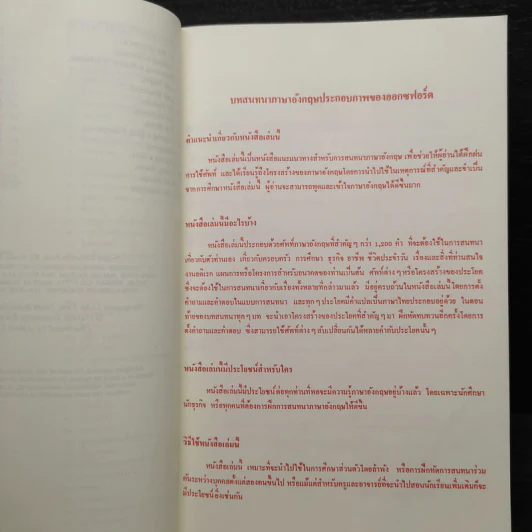 บทสนทนาภาษาอังกฤษประกอบภาพของออกซฟอร์ด
คำแนะนำเกี่ยวกับหนังสือเล่มนี้
หนังสือเล่มนี้เป็นหนังสือแนะแนวทางสำหรับการสนทนาภาษาอังกฤษ เพื่อช่วยให้ผู้อ่านได้ฝึกฝน
การใช้ศัพท์ และได้เรียนรู้ถึงโครงสร้างของภาษาอังกฤษโดยการนำไปใช้ในเหตุการณ์ที่สำคัญและจำเป็น
จากการศึกษาหนังสือเล่มนี้ ผู้อ่านจะสามารถพูดและเข้าใจภาษาอังกฤษได้ดีขึ้นมาก
หนังสือเล่มนี้มีอะไรบ้าง
หนังสือเล่มนี้ประกอบด้วยศัพท์ภาษาอังกฤษที่สำคัญๆ กว่า 1,200 คำ ที่จะต้องใช้ในการสนทนา
เกี่ยวกับตัวท่านเอง เกี่ยวกับครอบครัว การศึกษา ธุรกิจ อาชีพ ชีวิตประจำวัน เรื่องและสิ่งที่ท่านสนใจ
งานอดิเรก แผนการหรือโครงการสำหรับอนาคตของท่านเป็นต้น ศัพท์ต่างๆ หรือโครงสร้างของประโยค
ซึ่งจะต้องใช้ในการสนทนาเกี่ยวกับเรื่องทั้งหลายที่กล่าวมาแล้ว มีอยู่ครบถ้วนในหนังสือเล่มนี้โดยการตั้ง
คำถามและคำตอบในแบบการสนทนา และทุกๆ ประโยคมีคำแปลเป็นภาษาไทยประกอบอยู่ด้วย ในตอน
ท้ายของบทสนทนาทุกๆ บท จะนำเอาโครงสร้างของประโยคที่สำคัญๆ มา ฝึกหัดทบทวนอีกครั้งโดยการ
ตั้งคำถามและคำตอบ ซึ่งสามารถใช้ศัพท์ต่างๆ สับเปลี่ยนกันได้หลายคำกับประโยคนั้นๆ
หนังสือเล่มนี้มีประโยชน์สำหรับใคร
หนังสือเล่มนี้มีประโยชน์ต่อทุกท่านที่พอจะมีความรู้ภาษาอังกฤษอยู่บ้างแล้ว โดยเฉพาะนักศึกษา
นักธุรกิจ หรือทุกคนที่ต้องการฝึกการสนทนาภาษาอังกฤษให้ดีขึ้น
วิธีใช้หนังสือเล่มนี้
หนังสือเล่มนี้ เหมาะที่จะนำไปใช้ในการศึกษาส่วนตัวโดยลำพัง หรือการฝึกหัดการสนทนาร่วม
กันระหว่างบุคคลตั้งแต่สองคนขึ้นไป หรือแม้แต่สำหรับครูและอาจารย์ที่จะนำไปสอนนักเรียนเพิ่มเติมก็จะ
มีประโยชน์ยิ่งเช่นกัน